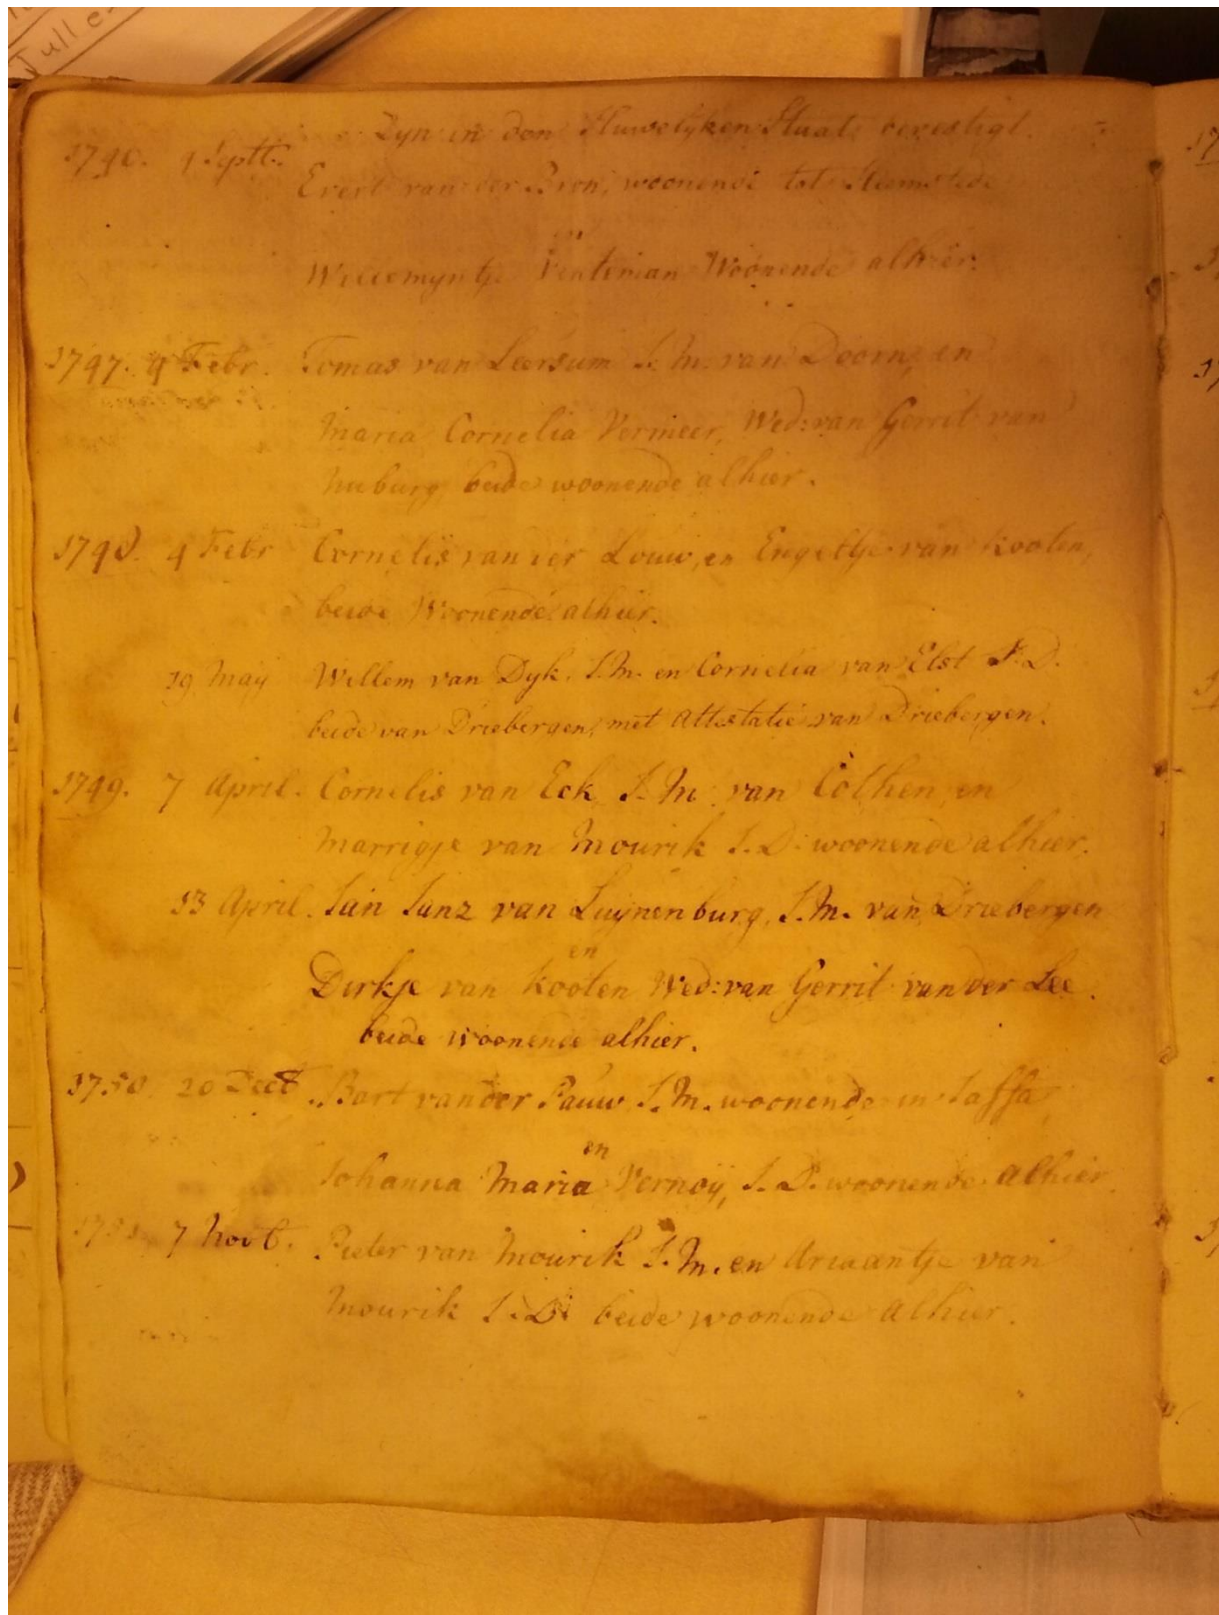 Zyn in den Huwelyken Staat bevestigt.
1746. 4 Septb. Evert van der Bron, woonende tot Heemstede
en
Willemyntje Venteman Woonende alhier.
1747. 4 Febr. Tomas van Leersum J. M. van Doorn, en
Maria Cornelia Vermeer, Wed: van Gerrit van
beide woonende alhier.
1748. 4 Febr Cornelis van der Louw, en Engeltje van Kooten,
beide Woonende alhier.
19 May Willem van Dyk. J. M. en Cornelia van Elst J. D.
beide van Driebergen, met attestatie van Driebergen.
1749. 7 April. Cornelis van Eck J. M. van Cothen, en
Marrigje van Mourik J. D. woonende alhier.
13 April. Jan Janz van Luynenburg, J. M. van Driebergen
en
Dirkje van Kooten Wed: van Gerrit van der Lee.
beide woonende alhier.
1750. 20 Bart van der Pauw J. M. woonende in Jaffa,
en
Johanna Maria Vernoÿ, J. D. woonende alhier.
7 Novb. Pieter van Mourik J. M. en Ariaantje van
Mourik J. D. beide woonende alhier.